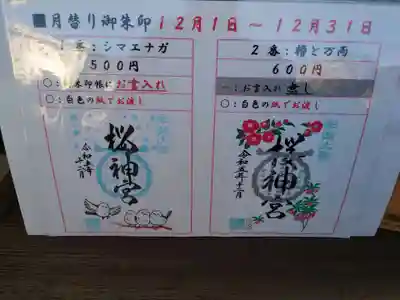 ■月替り御朱印 12月1日～12月31日
1番：シマエナガ
500円
○：御朱印帳にお書入れ
○：白色の紙でお渡し
桜神宮
令和五年十二月
2番：椿と万両
600円
－：お書入れ無し
○：白色の紙でお渡し
桜神宮
令和五年十二月